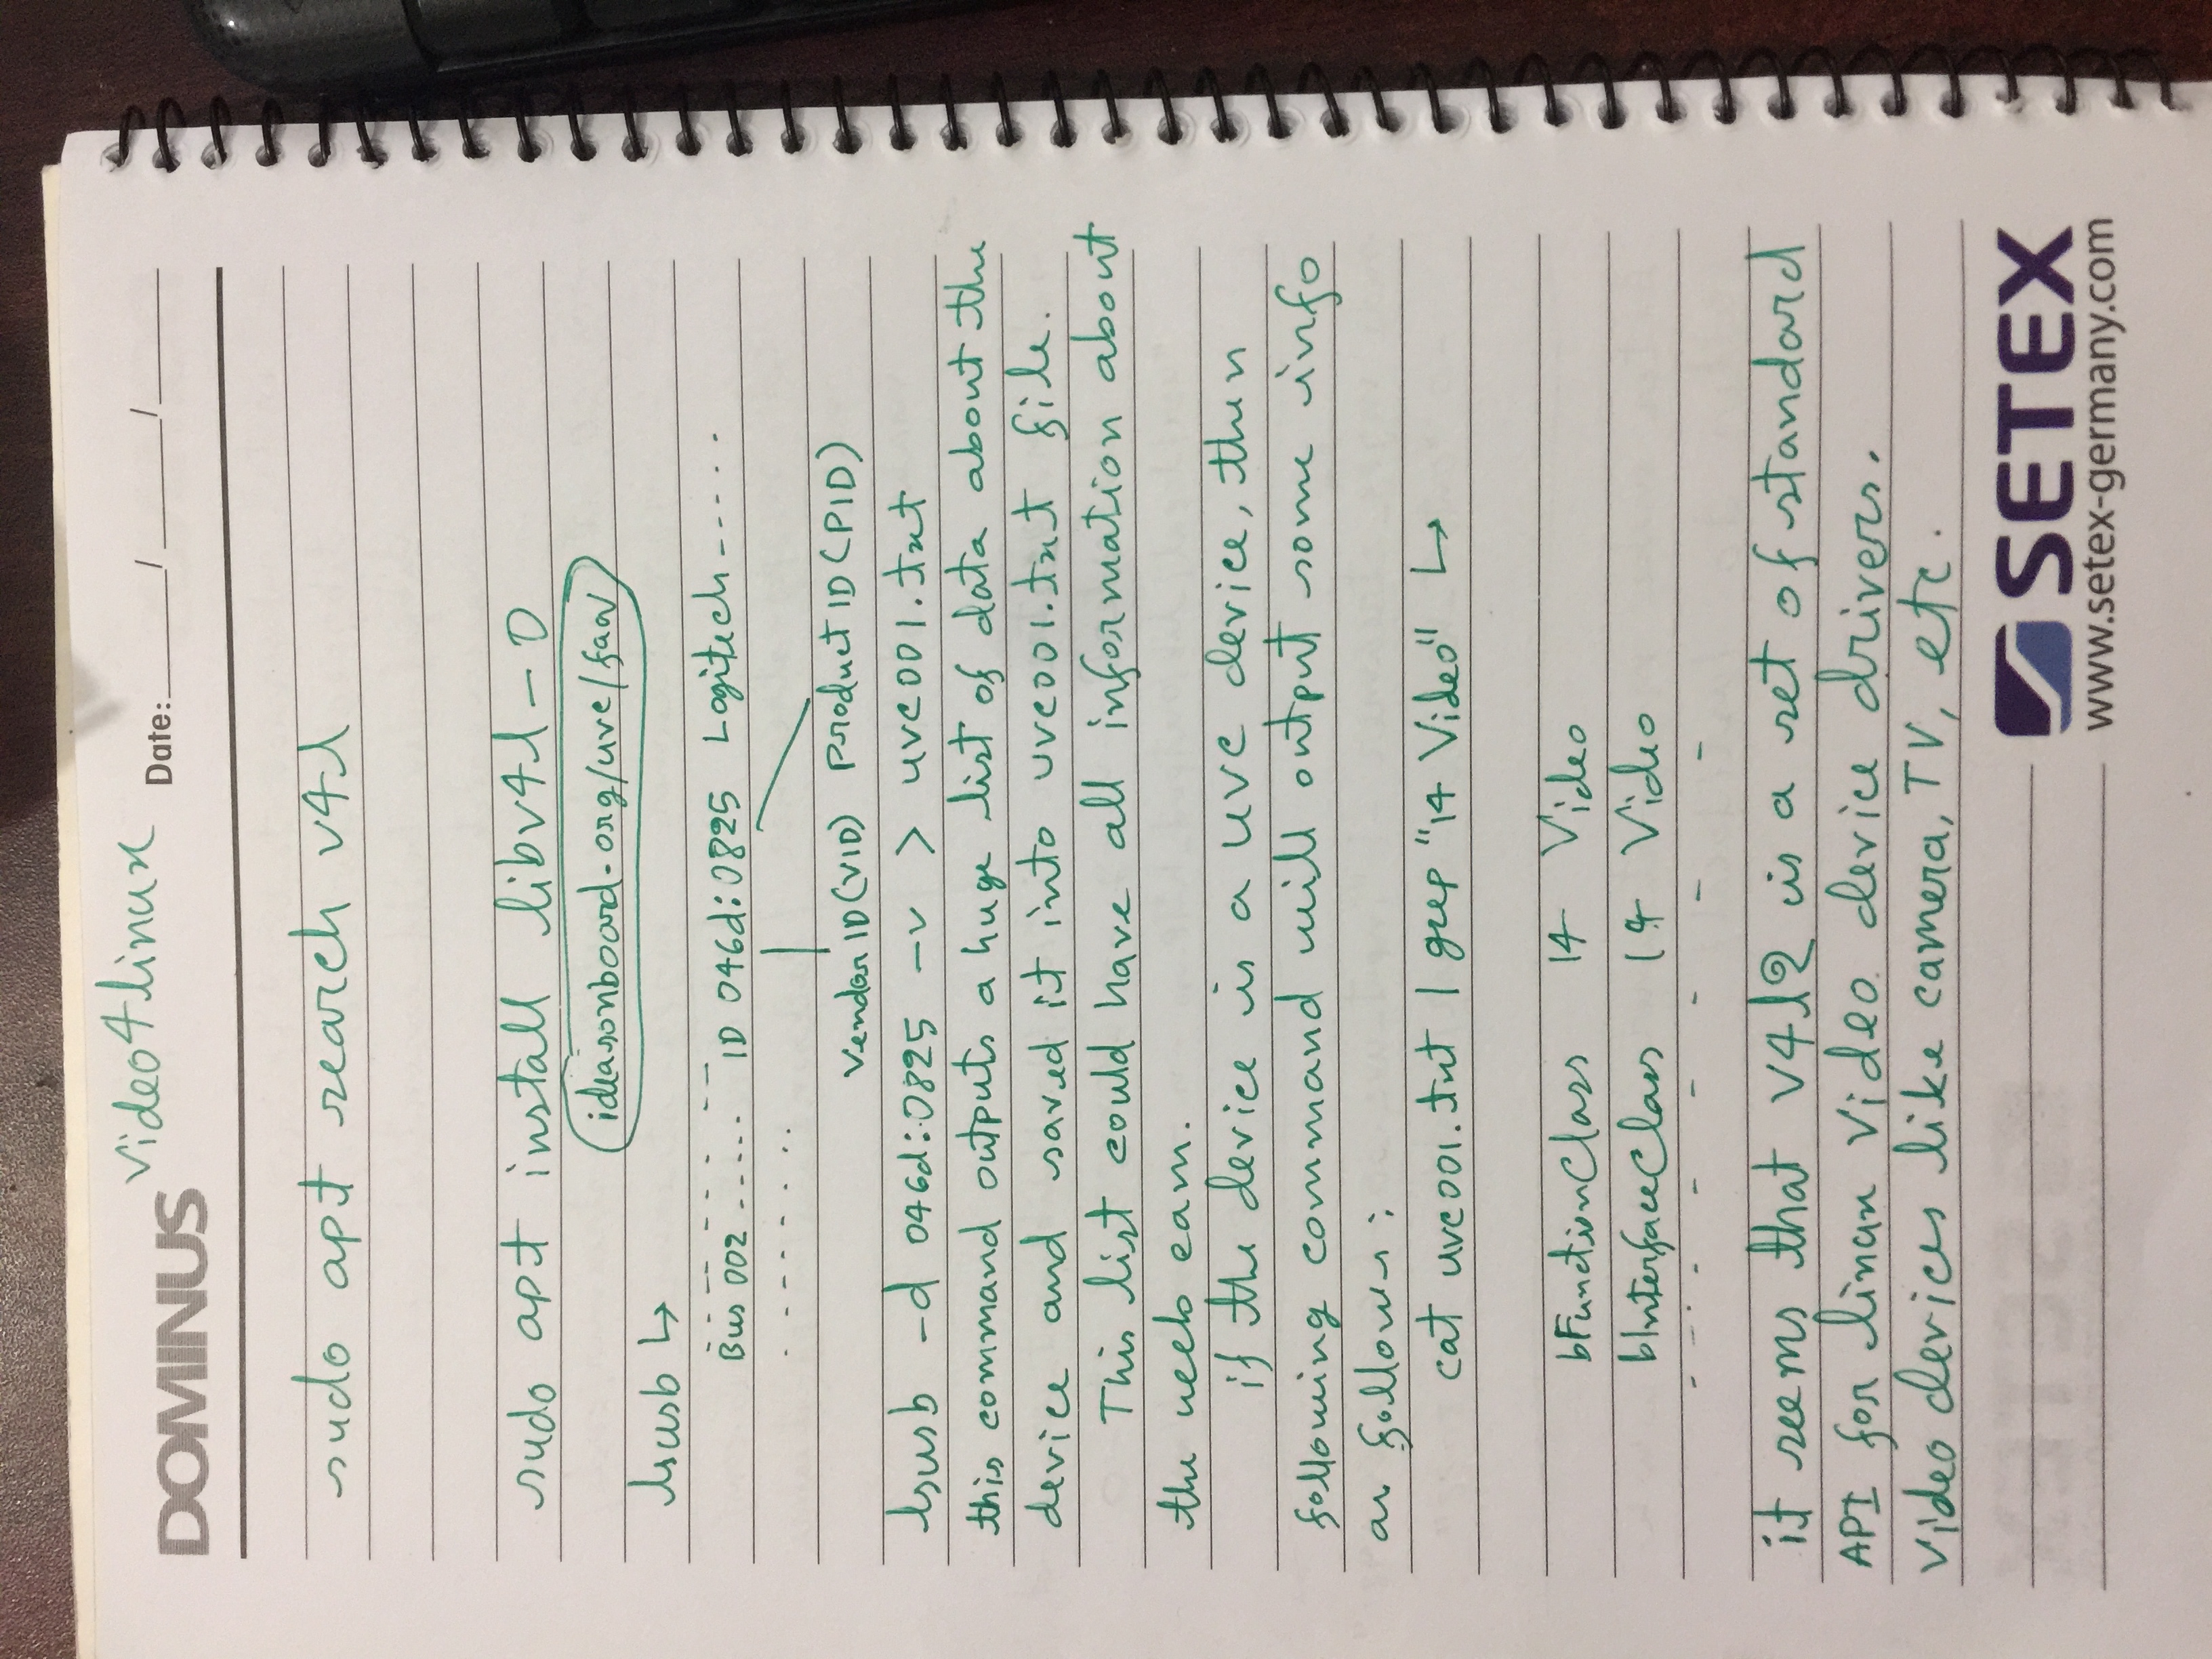 video4linux
DOMINUS
Date: / /
sudo apt search v4l
sudo apt install libv4l-0
ideasonboard.org/uvc/faq
lsusb ↳
Bus 002 ..... ID 046d:0825 Logitech -----
Vendor ID (VID) Product ID (PID)
lsusb -d 046d:0825 -v > uvc001.txt
this command outputs a huge list of data about the
device and saved it into uvc001.txt file.
This list could have all information about
the web cam.
if the device is a UVC device, then
following command will output some info
as follows:
cat uvc001.txt | grep "14 Video" ↳
bFunctionClass 14 Video
bInterfaceClass 14 Video
it seems that v4l2 is a set of standard
API for linux video device drivers.
video devices like camera, TV, etc.
SETEX
www.setex-germany.com